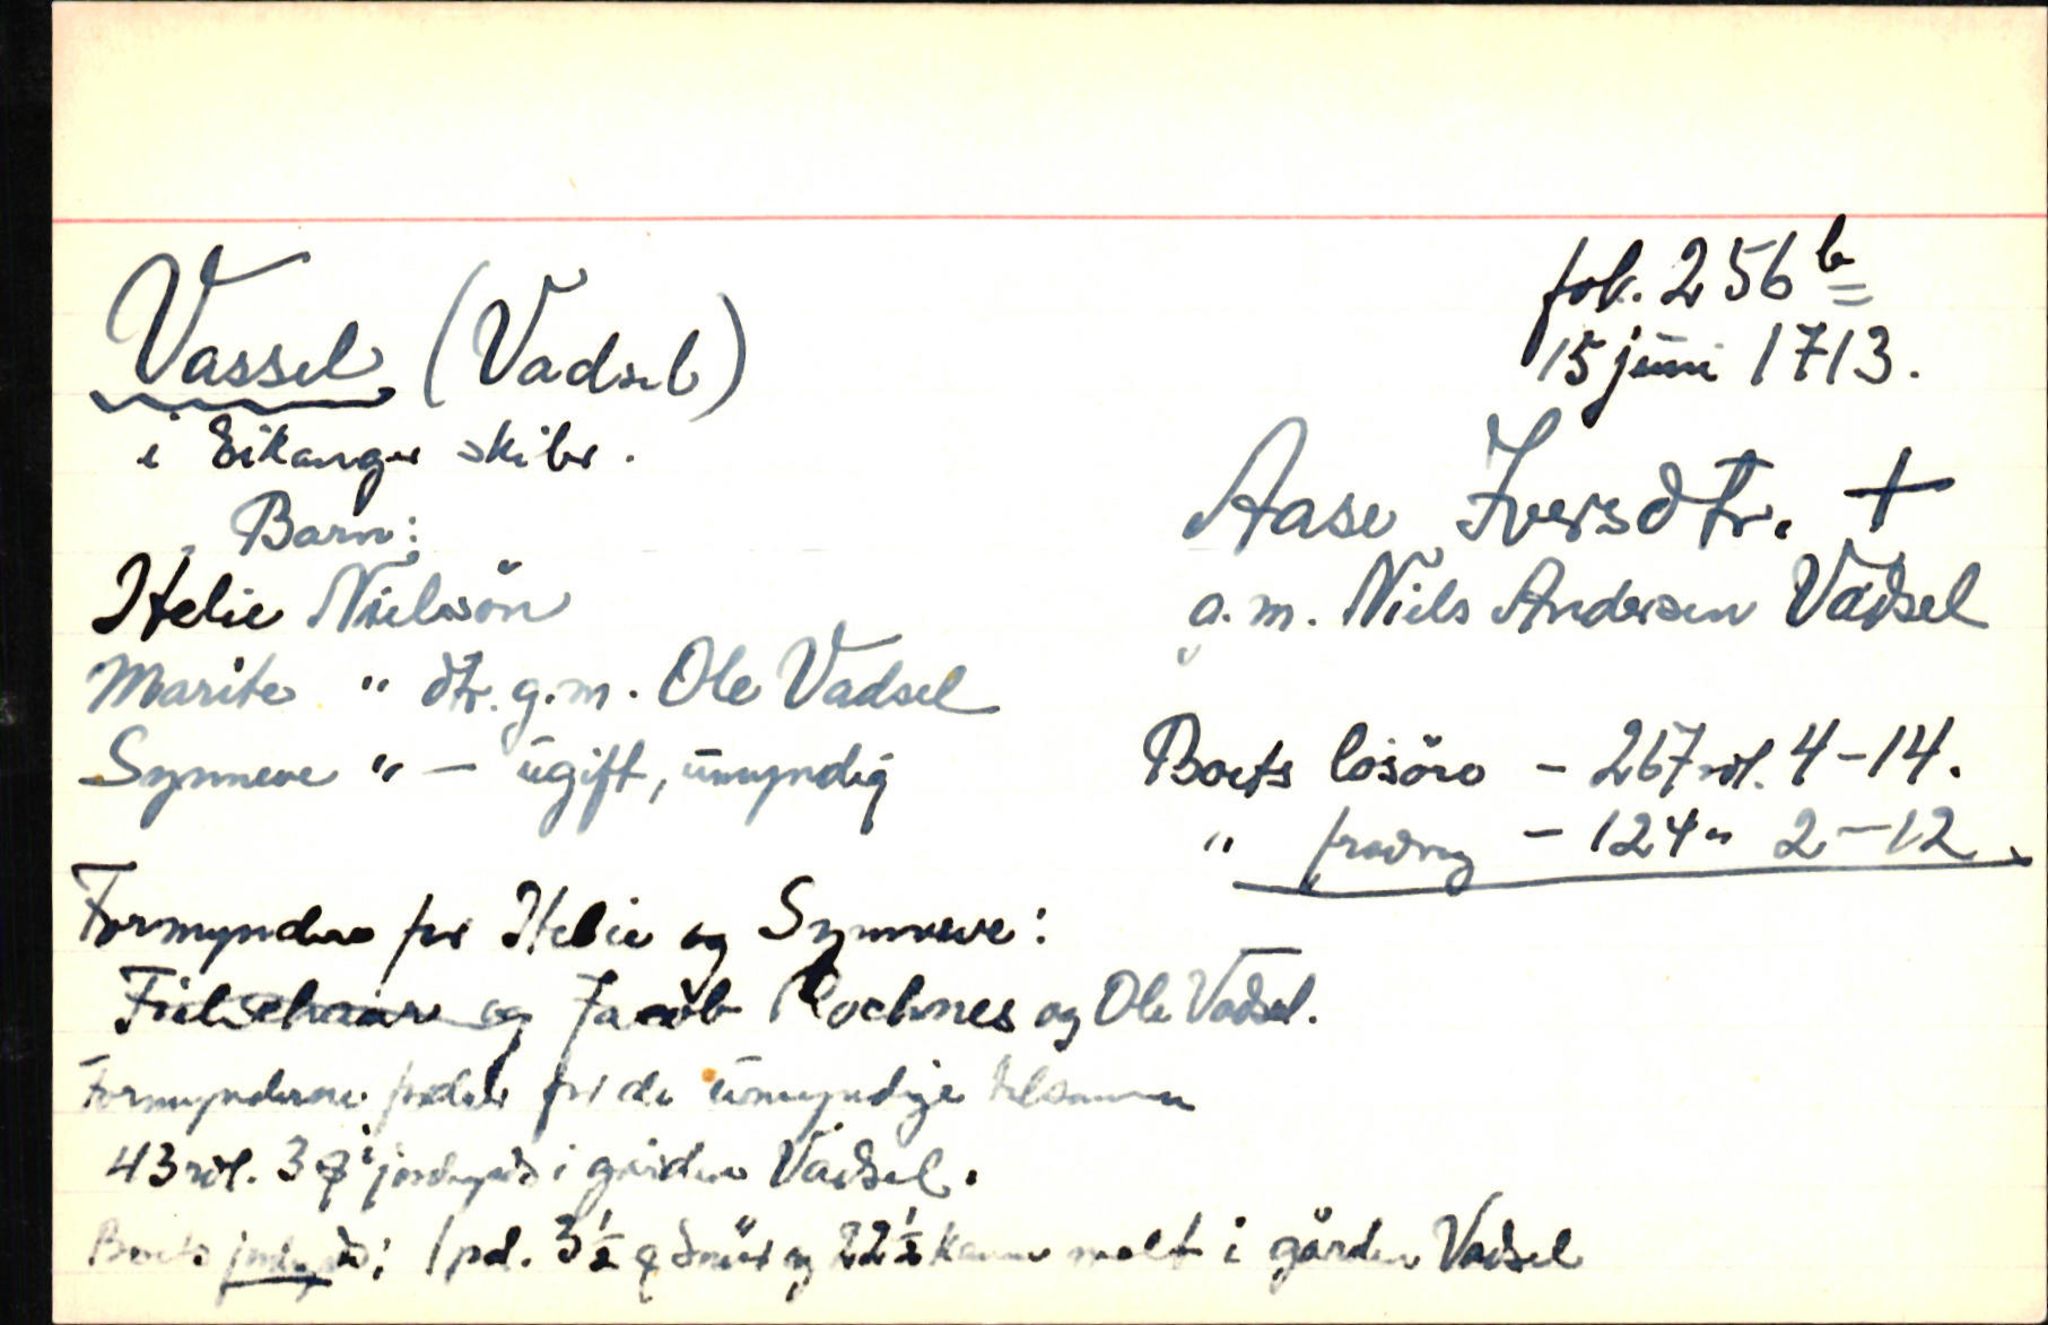 Vassel (Vadsel)
i Eikanger skibr.
fol. 256 b
15 juni 1713.
Aase Iversdtr. +
g.m. Niels Andersen Vadsel
Barn:
Helie Nielssön
Marite " dtr. g.m. Ole Vadsel
Synneve " — ugift, umyndig
Boets lösöre - 267 rdl. 4-14.
" fradrag - 124 " 2-12.
Formyndere for Helie og Synneve:
og Jacob Rochnes og Ole Vadsel.
Formynderne for de umyndige tilsammen
43 rdl. 3 i jordegods i gården Vadsel.
Boets jordegods: 1 pd. 3½ smör og 22½ kanne malt i gården Vadsel